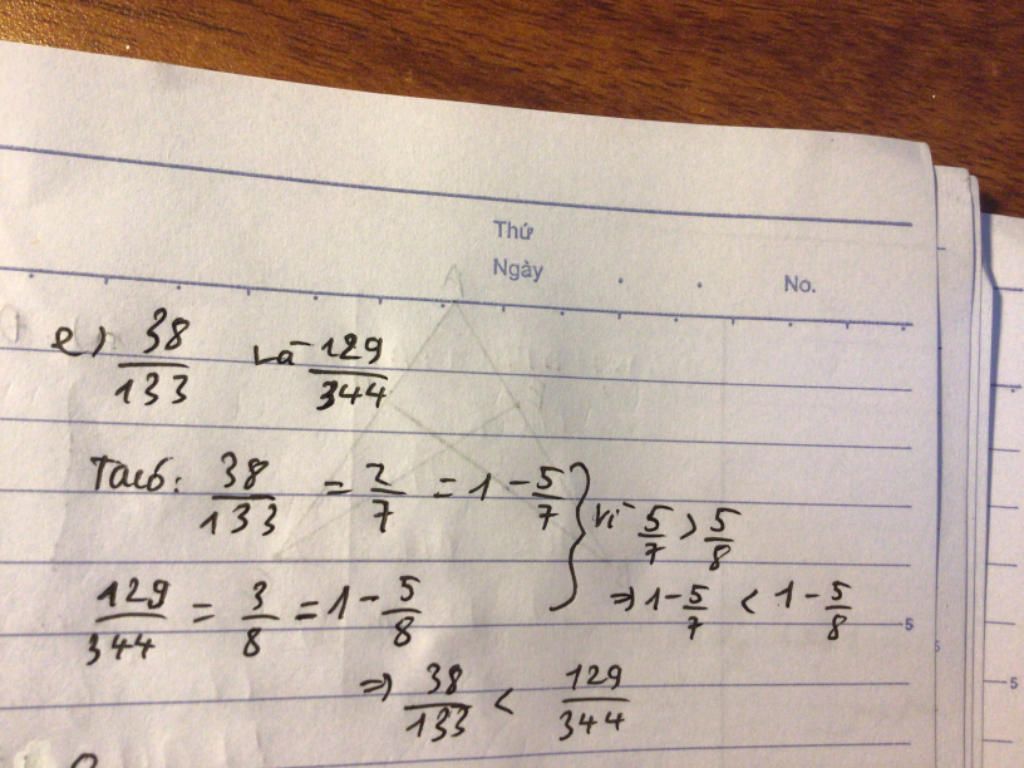 Thứ
Ngày . . No.
e) 38/133 và 129/344
Ta có: 38/133 = 2/7 = 1 - 5/7 } vì 5/7 > 5/8
129/344 = 3/8 = 1 - 5/8 ⇒ 1 - 5/7 < 1 - 5/8
5
⇒ 38/133 < 129/344
5